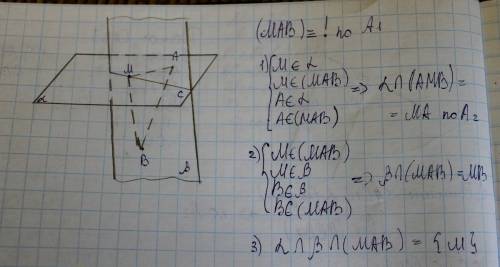 (MAB) ≡ ! по A₁
M
A
C
α
B
β
1) { M ∈ α
M ∈ (MAB)
A ∈ α
A ∈ (MAB)
=> α ∩ (AMB) =
= MA по A₂
2) { M ∈ (MAB)
M ∈ β
B ∈ β
B ∈ (MAB)
=> β ∩ (MAB) = MB
3) α ∩ β ∩ (MAB) = {M}